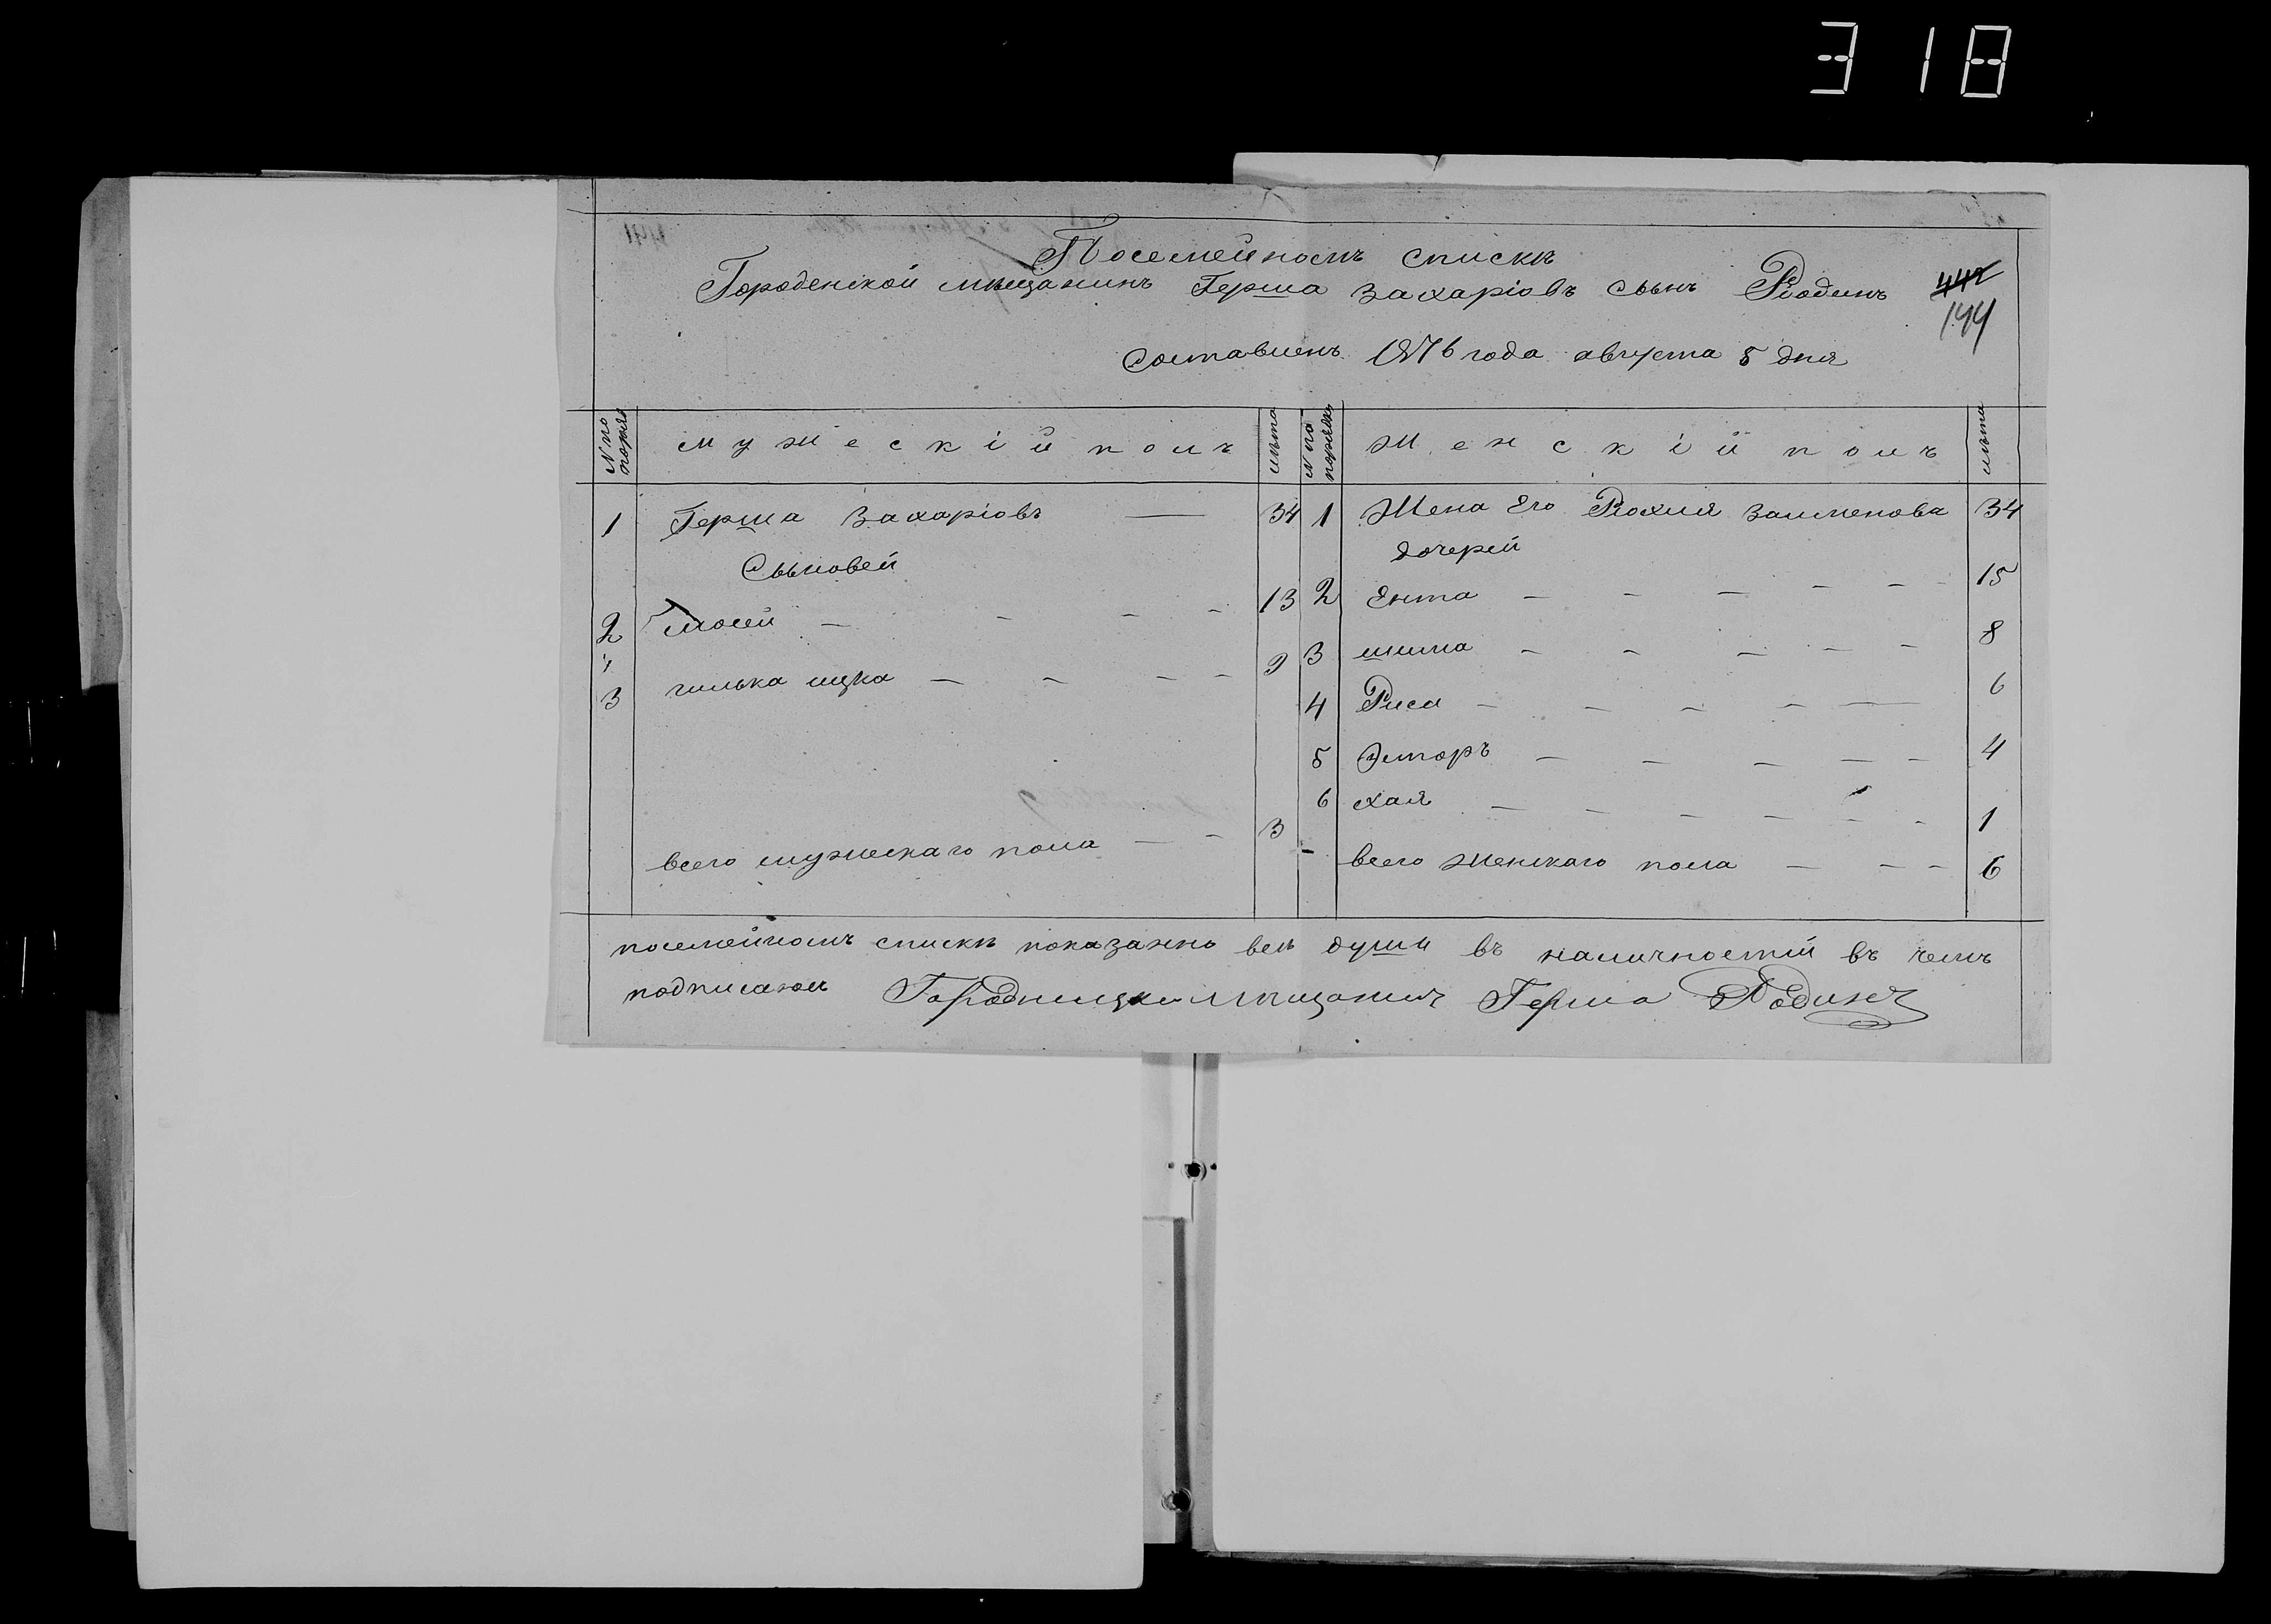 318
Посемейномъ спискѣ
Городенской мѣщанинъ Герша Захаріовъ сынъ Родинъ
442
144
Составленъ 1876 года августа 5 дня
№ по порядк
мужескій полъ
лѣта
№ по порядк
женскій полъ
лѣта
1 Герша Захаріовъ — 34
1 Жена Его Рохля Залменова 34
Сыновей
дочерей
2 Мосей — — — — 13
2 Ента — — — — — — 15
3 — — — — 9
3 шима — — — — — 8
4 Риса — — — — — 6
5 Эторъ — — — — — 4
6 хая — — — — — — 1
всего мужескаго пола — — 3
всего женскаго пола — — — 6
посемейномъ спискѣ показанно всѣ души въ наличностій въ чемъ
подписаюсь мѣщанинъ Герша Родинъ